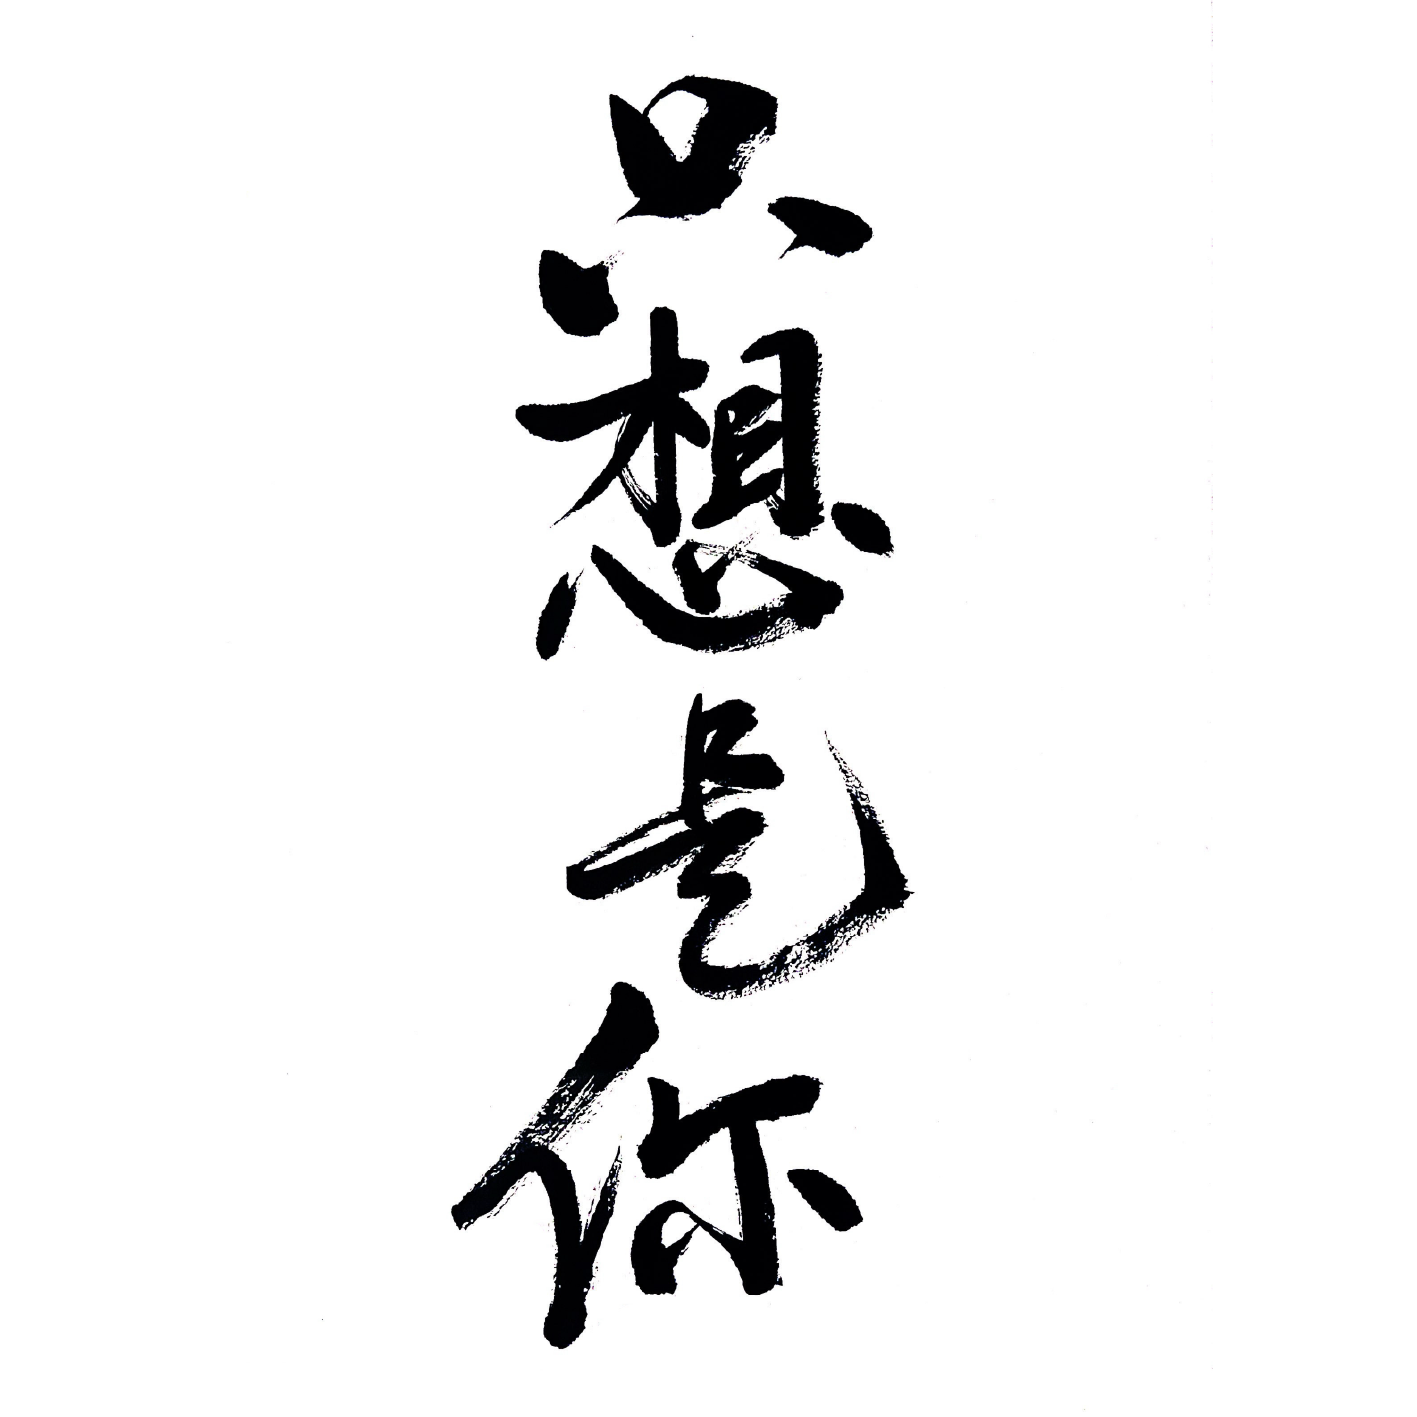 只想是你